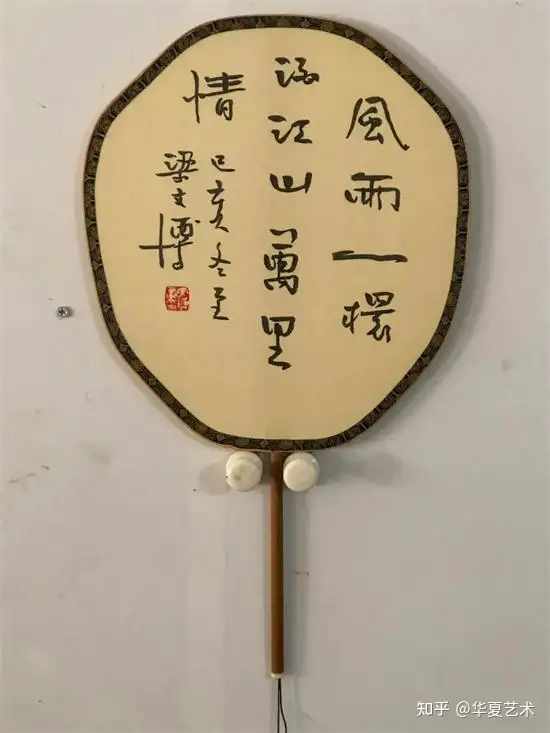 風雨一杯
酒江山萬里
情
己亥冬至
梁文博
知乎 @华夏艺术